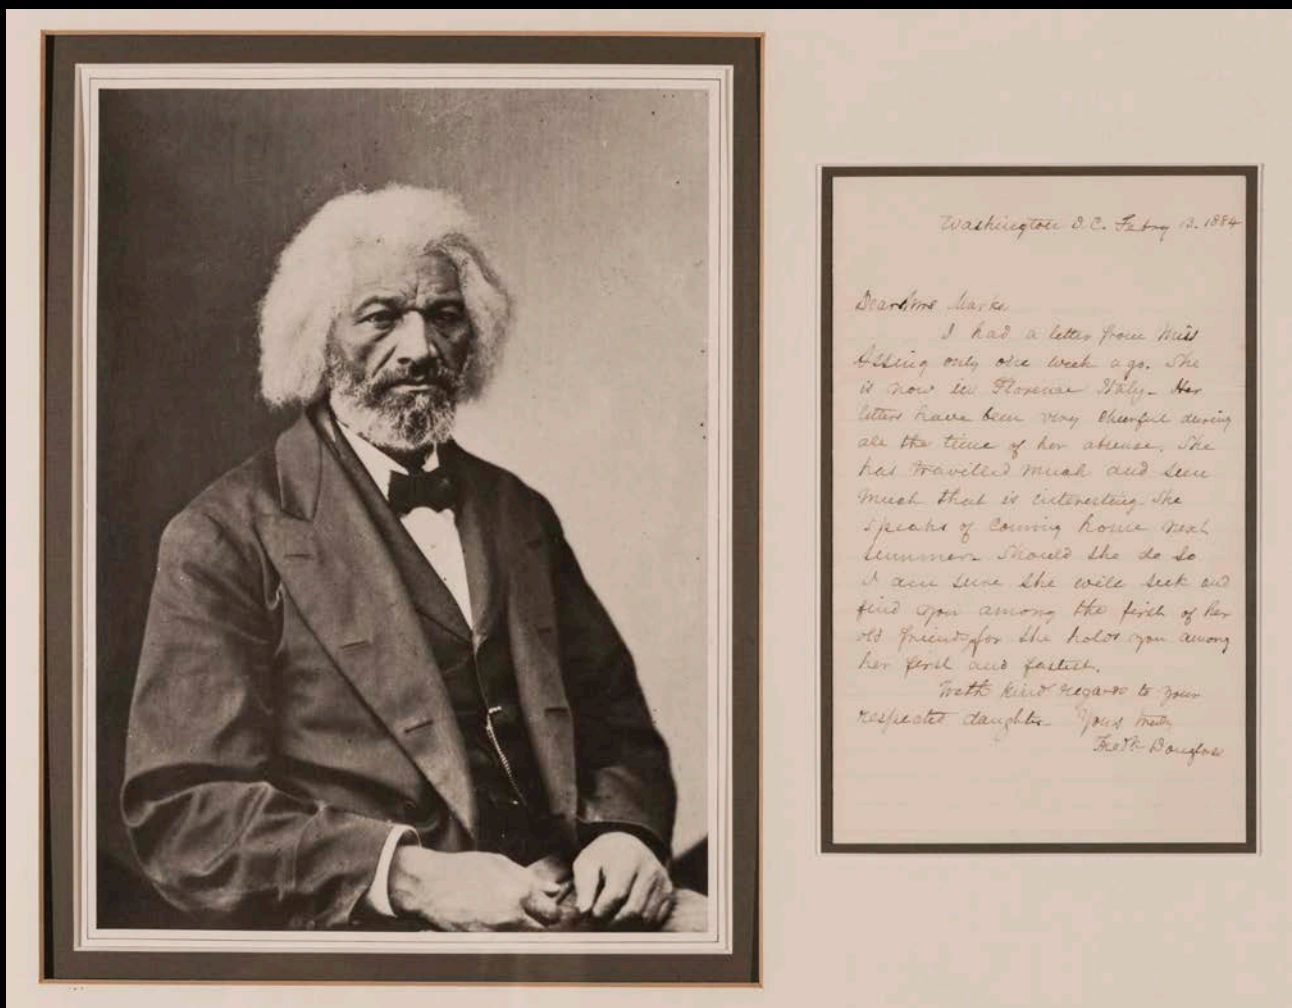 Washington D.C. Febry 13. 1884
Dear Mrs Marks
I had a letter from Miss
Assing only one week ago. She
is now in Florence Italy - Her
letters have been very cheerful during
all the time of her absense. She
has travilled much and seen
much that is interesting She
speaks of coming home next
summer - Should she do so
I am sure she will seek and
find you among the first of her
old friends for she holds you among
her first and fastest.
With kind regards to your
respected daughter - Yours truly
Fredk Douglass